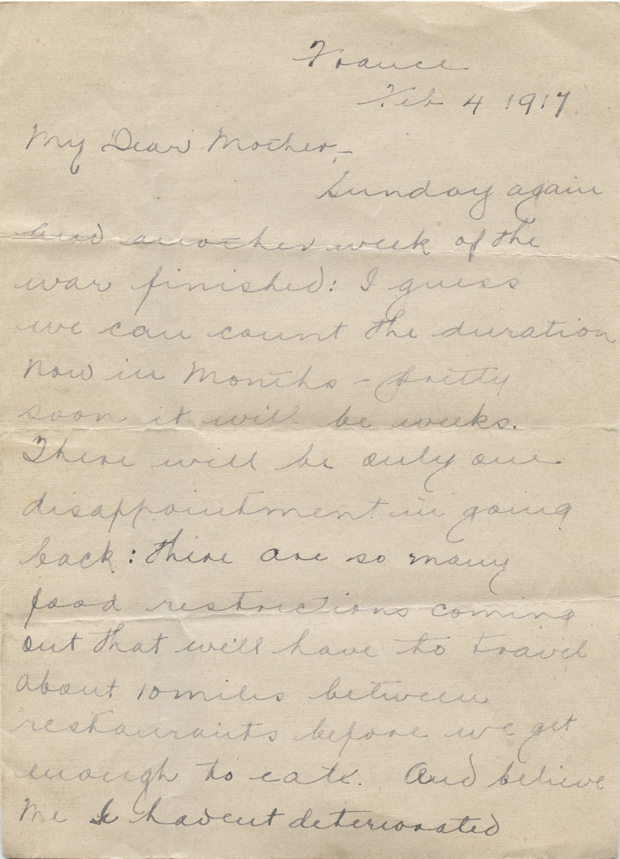 France
Feb 4 1917
My Dear Mother,-
Sunday again
and another week of the
war finished: I guess
we can count the duration
now in months - pretty
soon it will be weeks.
There will be only one
disappointment in going
back: there are so many
food restrictions coming
out that will have to travel
about 10 miles between
restaurants before we get
enough to eat. And believe
me I havent deteriorated